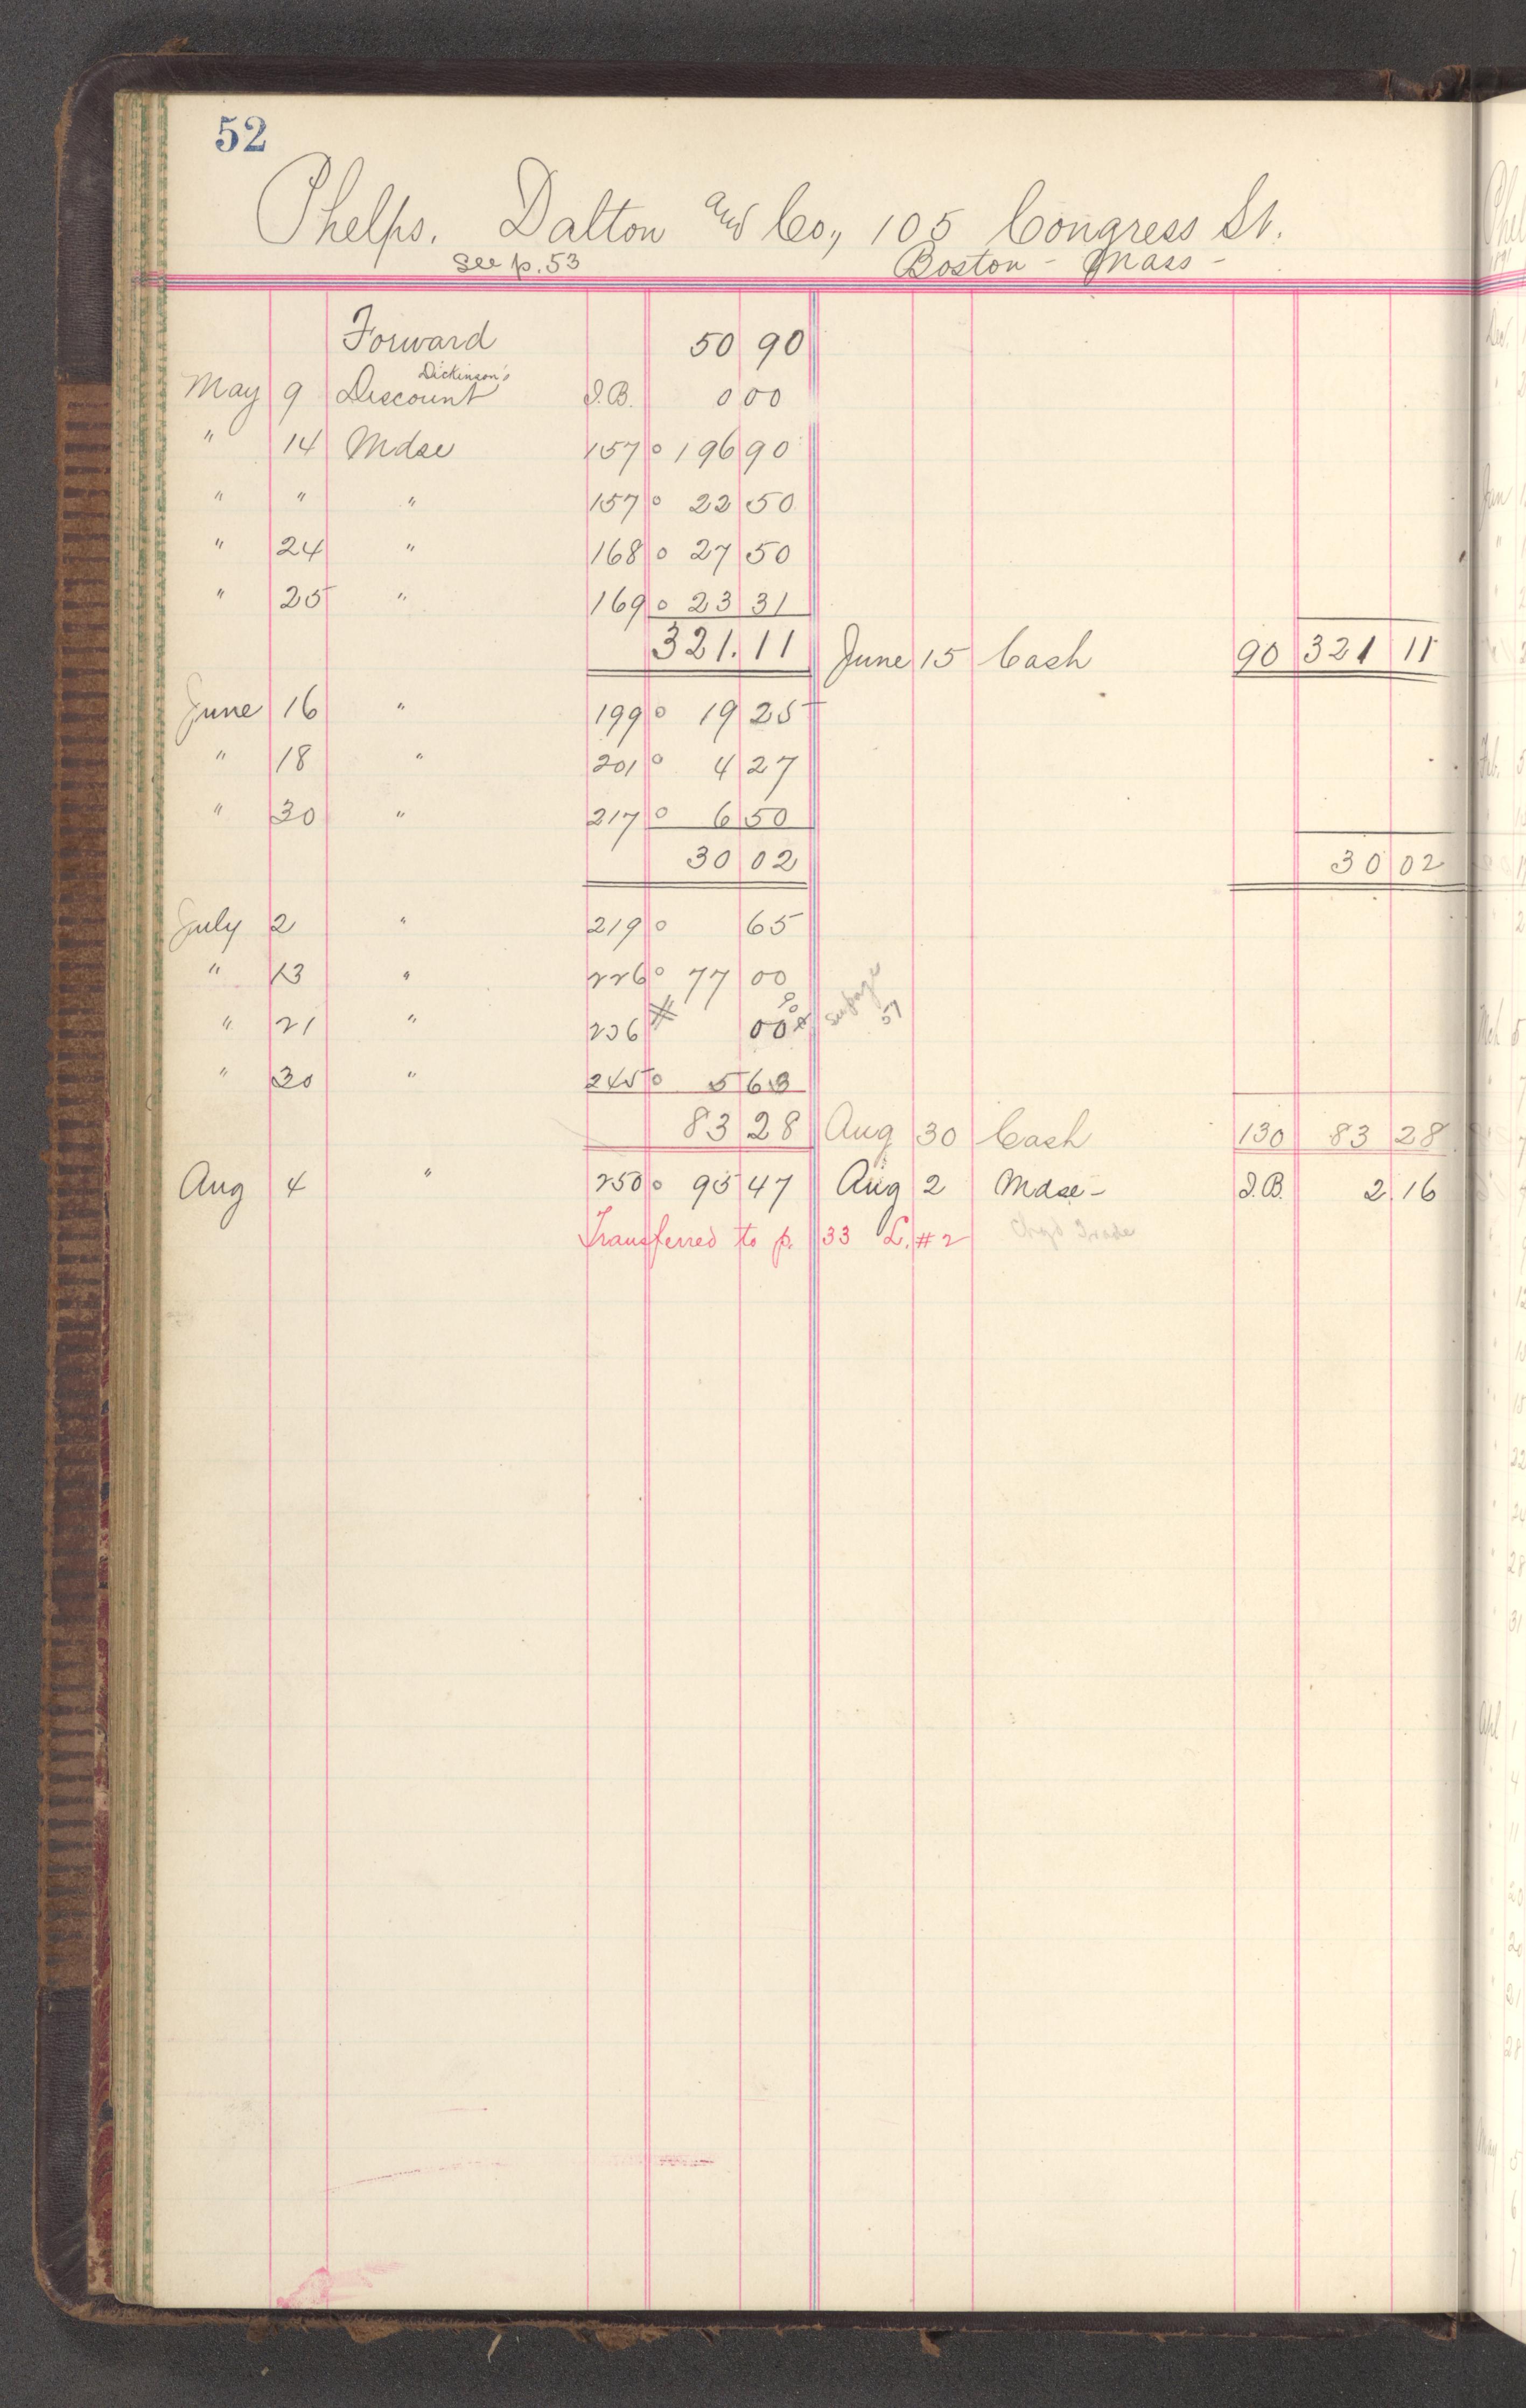 52
Phelps. Dalton and Co., 105 Congress St.
See p. 53 Boston - Mass -
Forward 50 90
Dickinson's
May 9 Discount J.B. 0 00
" 14 Mdse 157 o 196 90
" " " 157 o 22 50
" 24 " 168 o 27 50
" 25 " 169 o 23 31
321.11 June 15 Cash 90 321 11
June 16 " 199 o 19 25
" 18 " 201 o 4 27
" 30 " 217 o 6 50
30 02 30 02
July 2 " 219 o 65
" 13 " 226 o 77 00
" 21 " 236 # 00 see page 57
" 30 " 245 o 5 63
83 28 Aug 30 Cash 130 83 28
Aug 4 " 250 o 95 47 Aug 2 Mdse - J.B. 2 16
Transferred to p. 33 L. #2 Chgd Trade